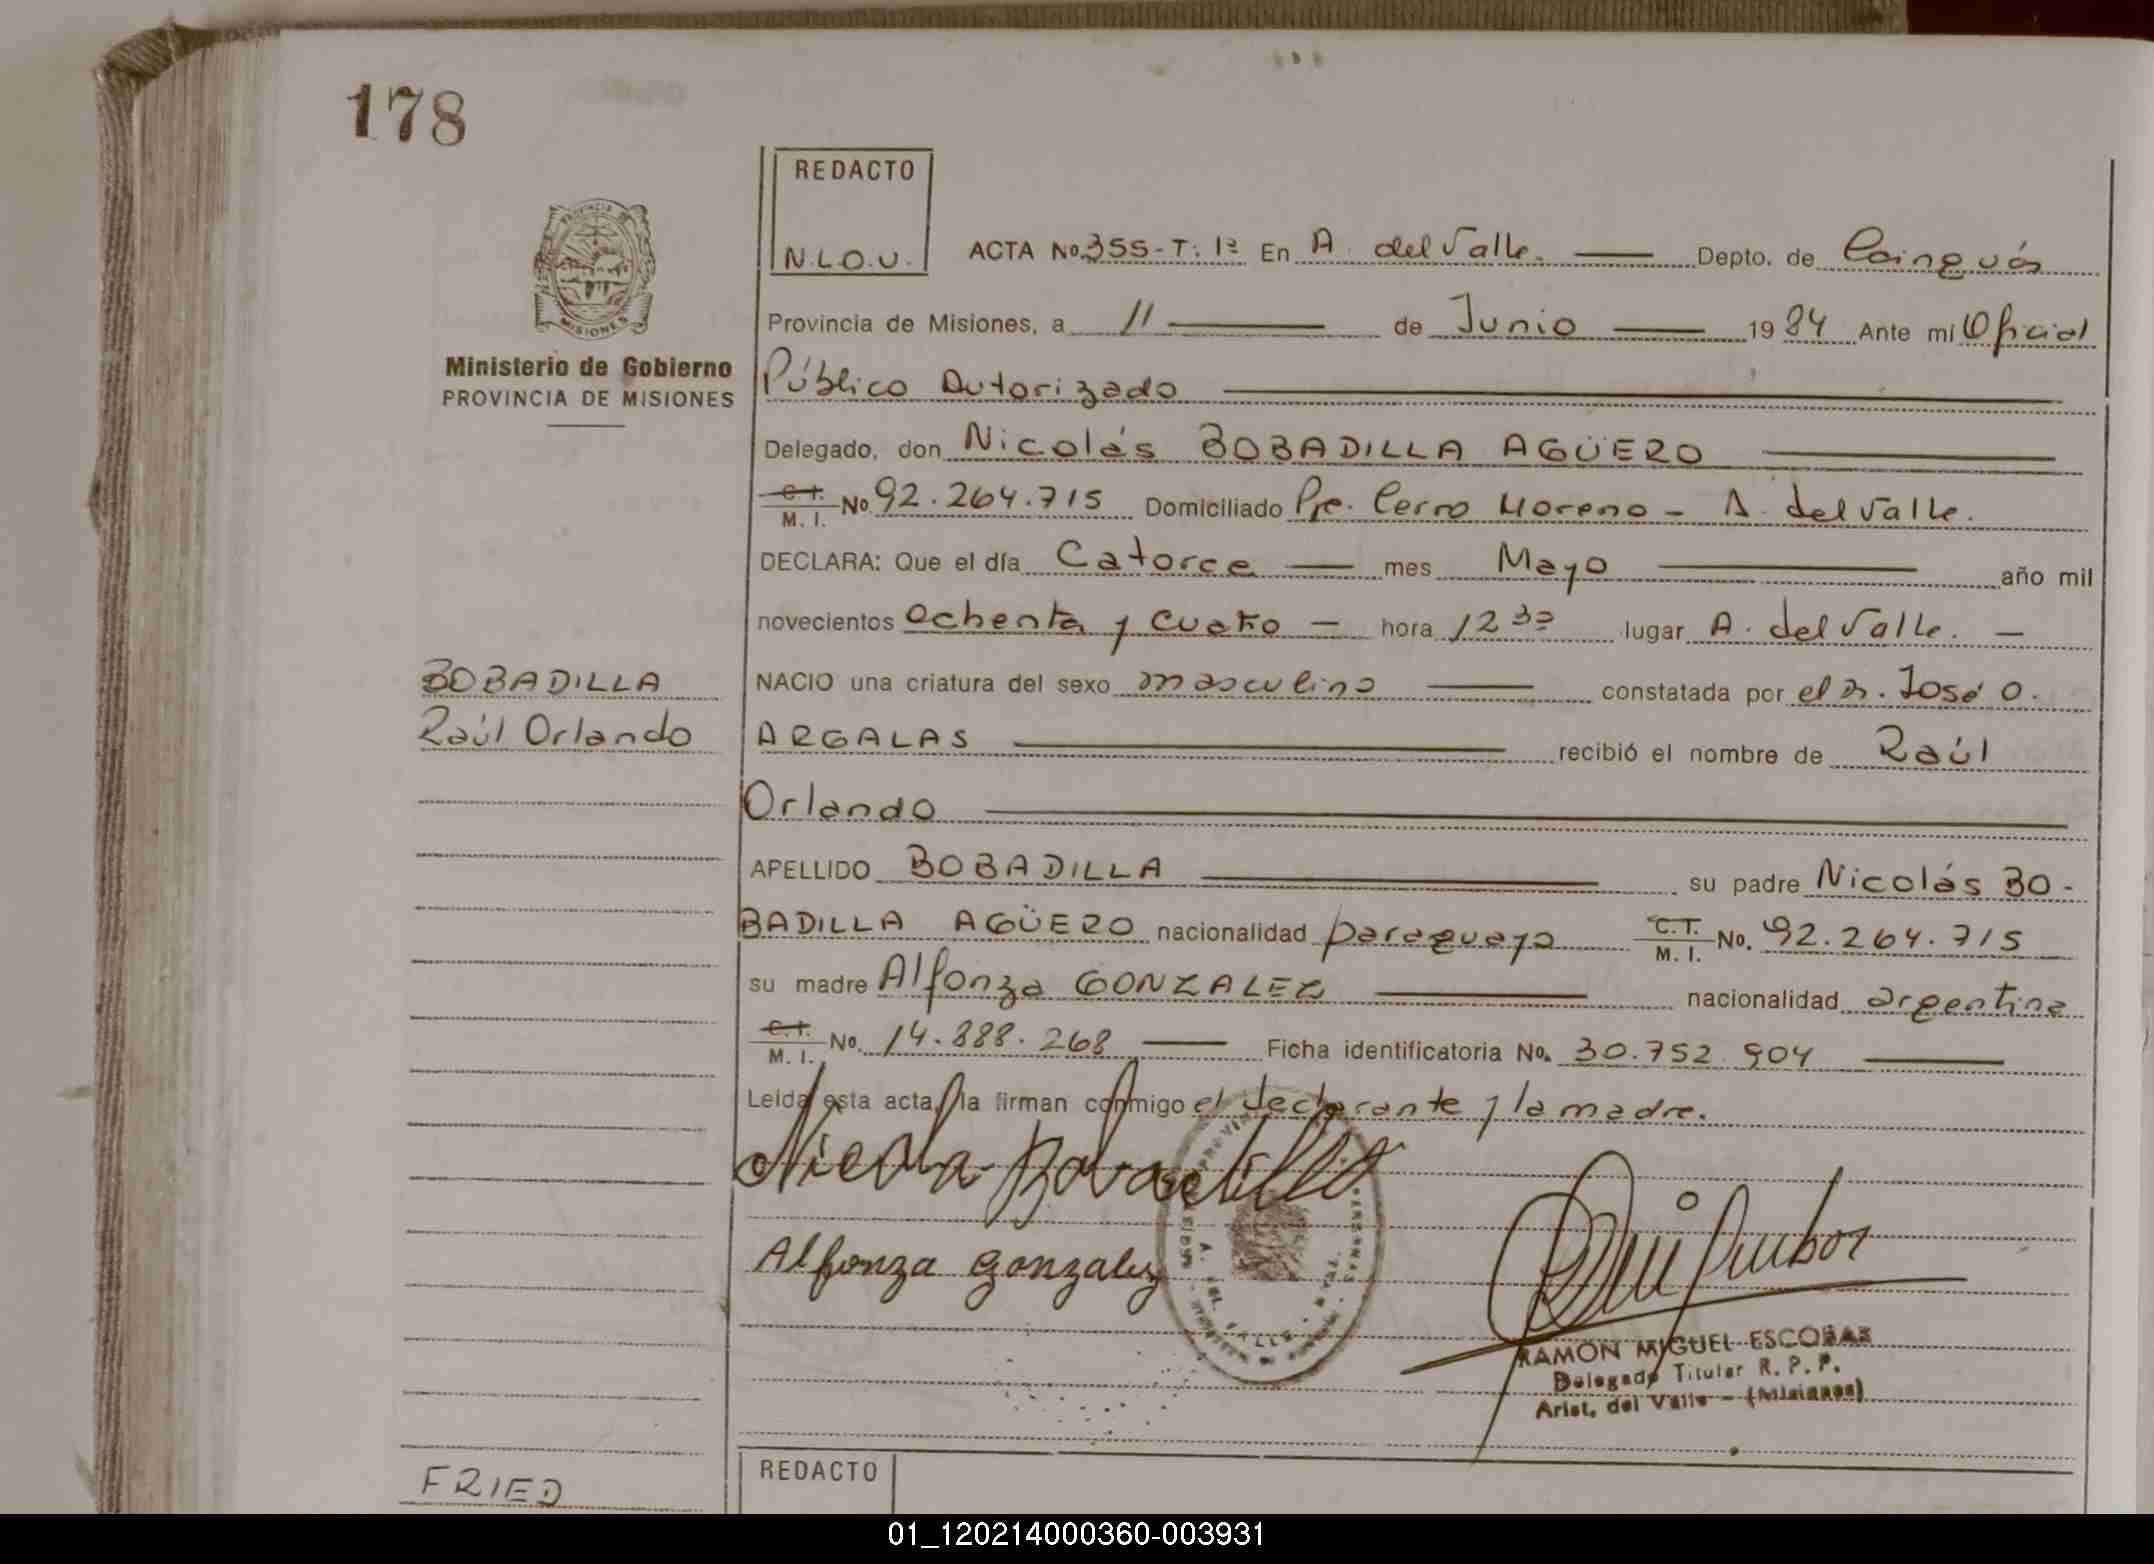 178
REDACTO
N.L.O.U.
ACTA No. 355-T: 1ª En A. del Valle. Depto. de Cainguás
Provincia de Misiones, a 11 de Junio 1984 Ante mí Oficial
MISIONES
Ministerio de Gobierno
PROVINCIA DE MISIONES
Público Autorizado
Delegado, don Nicolás BOBADILLA AGÜERO
C.I. M. I. No 92.264.715 Domiciliado Pje. Cerro Moreno - A. del Valle.
DECLARA: Que el día Catorce mes Mayo año mil
novecientos Ochenta y Cuatro - hora 12 30 lugar A. del Valle. -
BOBADILLA
Raúl Orlando
NACIO una criatura del sexo masculino constatada por el Dr. José O.
ARGALAS recibió el nombre de Raúl
Orlando
APELLIDO BOBADILLA su padre Nicolás BO-
BADILLA AGÜERO nacionalidad paraguaya C.I. M. I. No. 92.264.715
su madre Alfonza GONZALEZ nacionalidad argentina
C.I. M. I. No. 14.888.268 Ficha identificatoria No. 30.752.904
Leída esta acta, la firman conmigo el declarante y la madre.
Nicolas Bobadilla
Alfonza gonzalez
RAMON MIGUEL ESCOBAR
Delegado Titular R. P. P.
Arist. del Valle - (Misiones)
REDACTO
FRIED
01_120214000360-003931